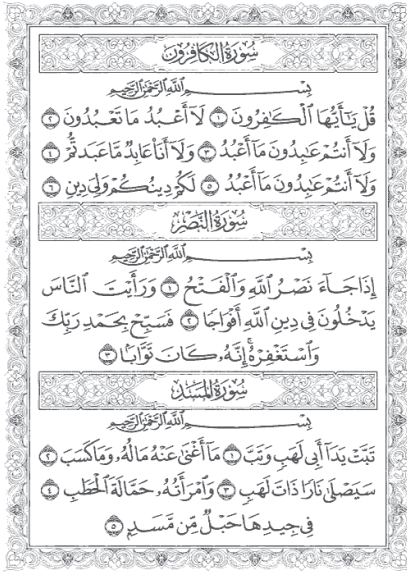 سُورَةُ الكَافِرُون
بِسْمِ اللَّهِ الرَّحْمَٰنِ الرَّحِيمِ
قُلْ يَٰٓأَيُّهَا ٱلْكَٰفِرُونَ ١ لَآ أَعْبُدُ مَا تَعْبُدُونَ ٢
وَلَآ أَنتُمْ عَٰبِدُونَ مَآ أَعْبُدُ ٣ وَلَآ أَنَا۠ عَابِدٌ مَّا عَبَدتُّمْ ٤
وَلَآ أَنتُمْ عَٰبِدُونَ مَآ أَعْبُدُ ٥ لَكُمْ دِينُكُمْ وَلِىَ دِينِ ٦
سُورَةُ النَّصْرِ
بِسْمِ اللَّهِ الرَّحْمَٰنِ الرَّحِيمِ
إِذَا جَآءَ نَصْرُ ٱللَّهِ وَٱلْفَتْحُ ١ وَرَأَيْتَ ٱلنَّاسَ
يَدْخُلُونَ فِى دِينِ ٱللَّهِ أَفْوَاجًا ٢ فَسَبِّحْ بِحَمْدِ رَبِّكَ
وَٱسْتَغْفِرْهُ ۚ إِنَّهُۥ كَانَ تَوَّابًۢا ٣
سُورَةُ المَسَد
بِسْمِ اللَّهِ الرَّحْمَٰنِ الرَّحِيمِ
تَبَّتْ يَدَآ أَبِى لَهَبٍ وَتَبَّ ١ مَآ أَغْنَىٰ عَنْهُ مَالُهُۥ وَمَا كَسَبَ ٢
سَيَصْلَىٰ نَارًا ذَاتَ لَهَبٍ ٣ وَٱمْرَأَتُهُۥ حَمَّالَةَ ٱلْحَطَبِ ٤
فِى جِيدِهَا حَبْلٌ مِّن مَّسَدٍۭ ٥